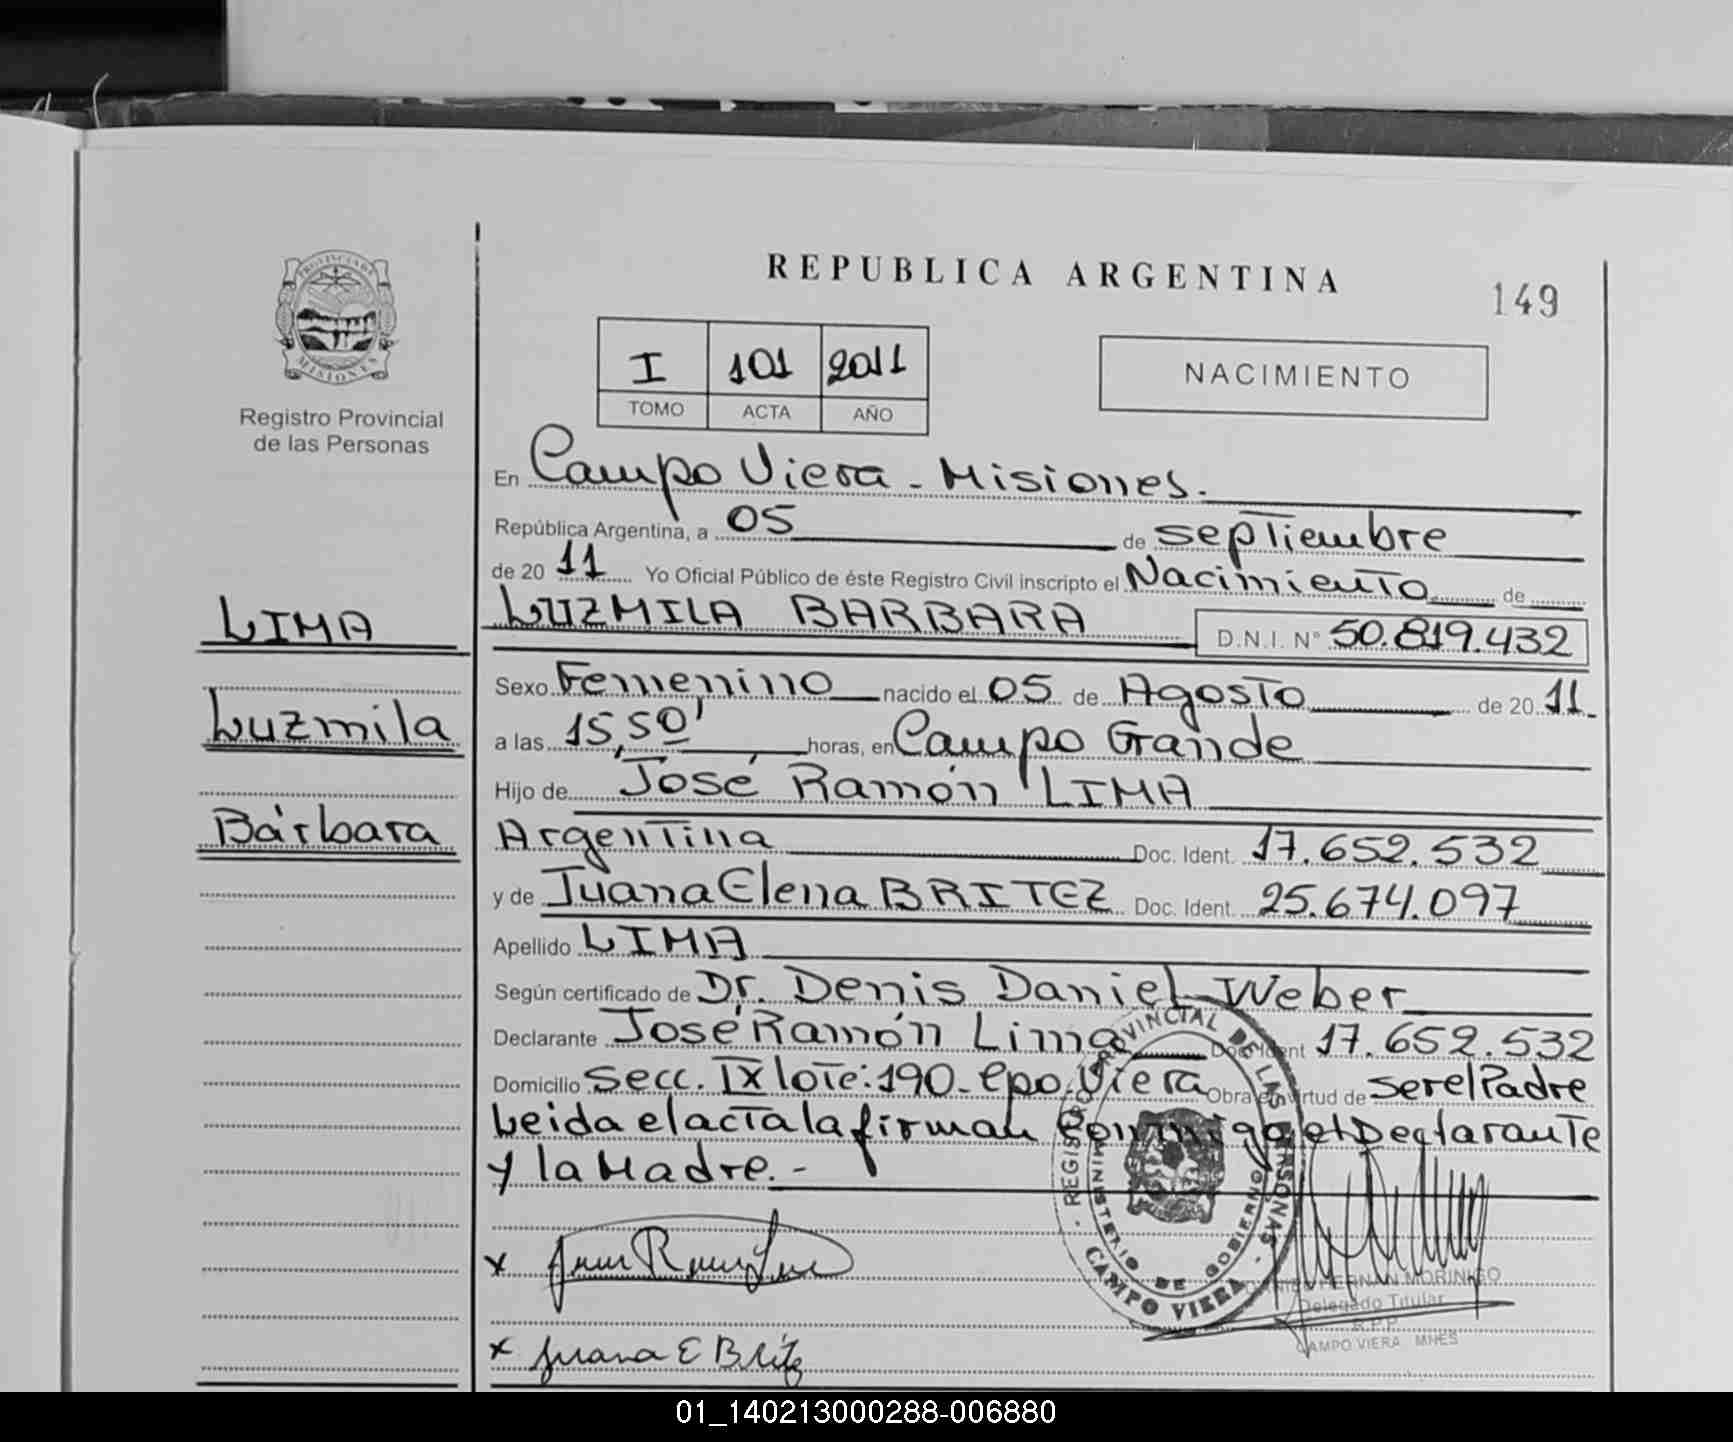 REPUBLICA ARGENTINA
149
PROVINCIA DE
MISIONES
Registro Provincial
de las Personas
I 101 2011
TOMO ACTA AÑO
NACIMIENTO
En Campo Viera - Misiones.
República Argentina, a 05 de septiembre
de 20 11 Yo Oficial Público de éste Registro Civil inscripto el Nacimiento de
LUZMILA BARBARA D.N.I. N° 50.819.432
LIMA
Luzmila
Bárbara
Sexo Femenino nacido el 05 de Agosto de 20 11
a las 15,50' horas, en Campo Grande
Hijo de José Ramón LIMA
Argentina Doc. Ident. 17.652.532
y de Juana Elena BRITEZ Doc. Ident. 25.674.097
Apellido LIMA
Según certificado de Dr. Denis Daniel Weber
Declarante José Ramón Lima Doc. Ident 17.652.532
Domicilio Secc. IX lote: 190 - Cpo. Viera Obra en virtud de ser el Padre
Leida el acta la firman conmigo el Declarante
y la Madre. -
REGISTRO PROVINCIAL DE LAS PERSONAS
MINISTERIO DE GOBIERNO
CAMPO VIERA
x
x Juana E Britez
HERNAN MORINIGO
Delegado Titular
R.P.P.
CAMPO VIERA MNES
01_140213000288-006880